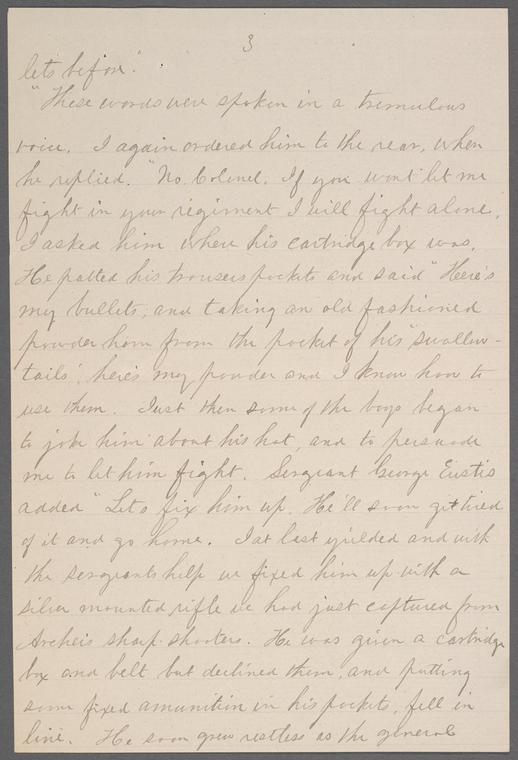 3
lets before."
"These words were spoken in a tremulous
voice. I again ordered him to the rear, when
he replied. "No. Colonel. If you wont let me
fight in your regiment I will fight alone.
I asked him where his cartridge box was.
He patted his trousers pockets and said "Here's
my bullets, and taking an old fashioned
powder horn from the pocket of his "swallow-
tails', here's my powder and I know how to
use them. Just then some of the boys began
to joke him about his hat, and to persuade
me to let him fight. Sergeant George Eustis
added "Lets fix him up. He'll soon get tired
of it and go home. I at last yielded and with
the sergeants help we fixed him up with a
silver mounted rifle we had just captured from
Archers sharp-shooters. He was given a cartridge
box and belt but declined them, and putting
some fixed amunition in his pockets, fell in
line. He soon grew restless as the general